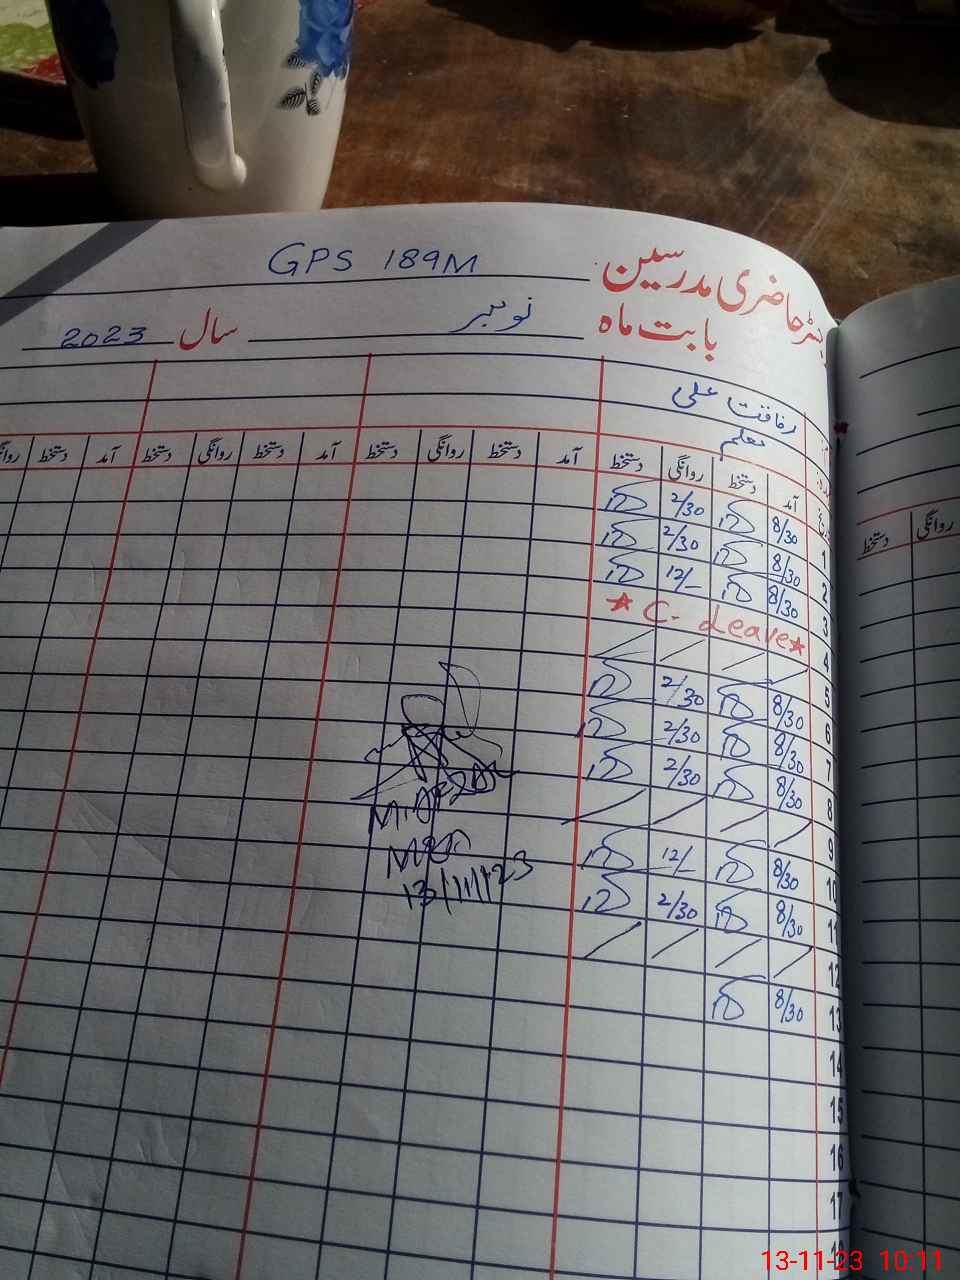 GPS 189M
رجسٹر حاضری مدرسین
بابت ماہ نومبر سال 2023
رفاقت علی
معلم
آمد دستخط روانگی دستخط آمد دستخط روانگی دستخط آمد دستخط روانگی دستخط آمد دستخط روانگی
دستخط روانگی
1 8/30 2/30
2 8/30 2/30
3 8/30 12/-
4 ★ C- Leave ★
5
6 8/30 2/30
7 8/30 2/30
8 8/30 2/30
9
10 8/30 12/-
11 8/30 2/30
12
13 8/30
14
15
16
17
18
13/11/23
13-11-23 10:11